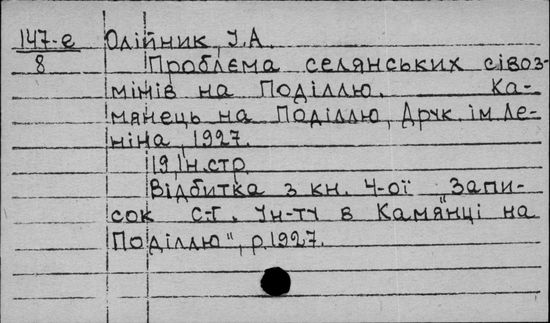 147-е Олійник, У.А.
8 Проблєма селянських сівоз-
мінів на Поділлю. Ка-
мянець на Поділлю, Друк. ім. Ле-
ніна, 1927.
19, ін. стр.
Відбитка з кн. 4-ої „Запи-
сок с-г. ун-ту в Камянці на
Поділлю", р.1927.